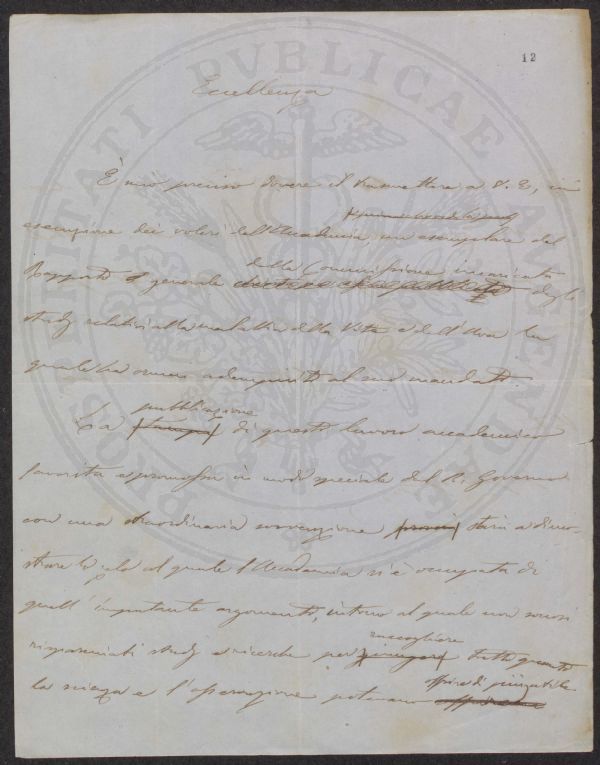 12
PROSPERITATI PVBLICAE AVGENDAE
Eccellenza
È mio preciso dovere il trasmettere a V. E., in
esecuzione dei voleri dell'Accademia un esemplare del
Rapporto generale della Commissione incaricata degli
studj relativi alla malattia della Vite e dell'Uva la
quale ha ormai adempiuto al suo mandato.
La pubblicazione di questo lavoro accademico
favorita e promossa in modo speciale dal R. Governo
con una straordinaria sovvenzione starà a dimo-
strare lo zelo al quale l'Accademia si è occupata di
quell'importante argomento, intorno al quale non sonosi
risparmiati studj e ricerche per raccogliere tutto quanto
la scienza e l'osservazione potevano offrire di più utile